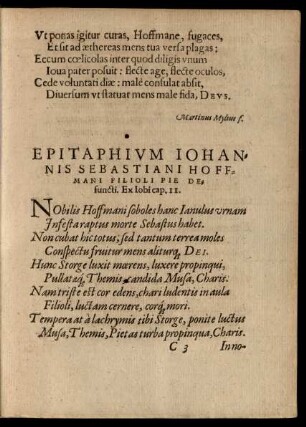 Vt ponas igitur curas, Hoffmane, fugaces,
Et sit ad æthereas mens tua versa plagas;
Eccum cœlicolas inter quod diligis vnum
Ioua pater posuit: flecte age, flecte oculos,
Cede voluntati diæ: malè consulat absit,
Diuersum vt statuat mens male fida, DEVS.
Martinus Mylius f.
EPITAPHIVM IOHAN-
NIS SEBASTIANI HOFF-
MANI FILIOLI PIE DE-
functi. Ex Iobi cap. 11.
NObilis Hoffmani soboles hanc Ianulus vrnam
Infesta raptus morte Sebastus habet.
Non cubat hic totus; sed tantum terrea moles
Conspectu fruitur mens aliturq; DEI.
Hunc Storge luxit mœrens, luxere propinqui,
Pullataq; Themis candida Musa, Charis.
Nam triste est cor edens, chari ludentis in aula
Filioli, luctam cernere, corq; mori.
Tempera at à lachrymis tibi Storge, ponite luctus
Musa, Themis, Pietas turba propinqua, Charis.
C 3 Inno-